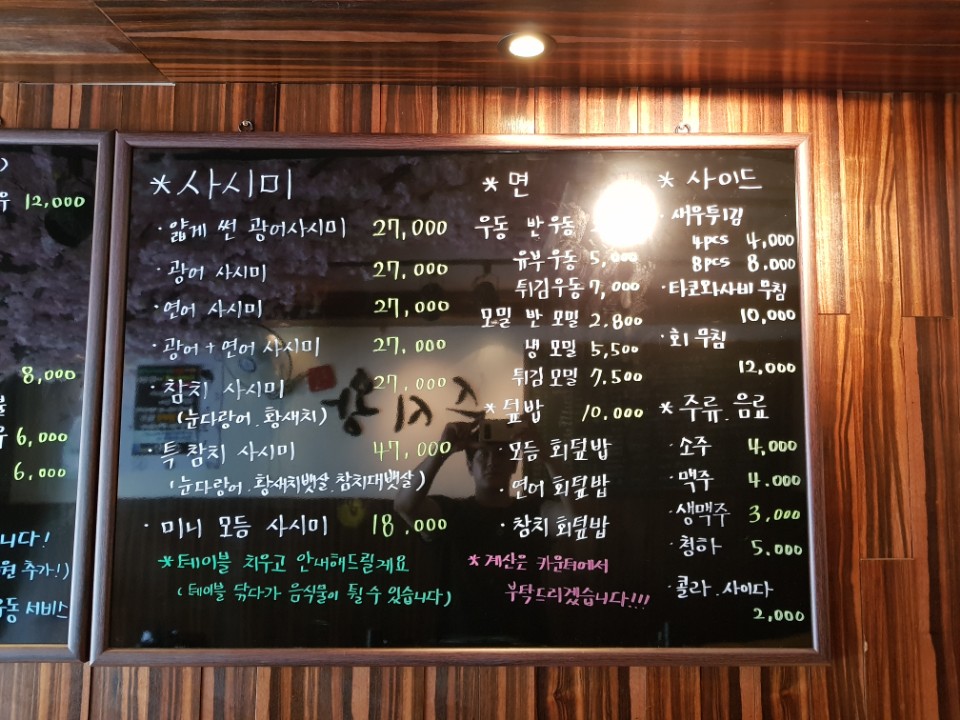 12,000
8,000
6,000
6,000
니다!
원 추가!)
우동 서비스
*사시미
·얇게 썬 광어사시미 27,000
·광어 사시미 27,000
·연어 사시미 27,000
·광어+연어 사시미 27,000
·참치 사시미 27,000
(눈다랑어.황새치)
·특 참치 사시미 47,000
(눈다랑어.황새치뱃살.참치대뱃살)
·미니 모듬 사시미 18.000
*테이블 치우고 안내해드릴게요
(테이블 닦다가 음식물이 튈 수 있습니다)
*면
우동 반 우동
유부우동 5,000
튀김우동 7,000
모밀 반 모밀 2,800
냉 모밀 5,500
튀김 모밀 7,500
*덮밥 10,000
·모듬 회덮밥
·연어 회덮밥
·참치 회덮밥
*계산은 카운터에서
부탁드리겠습니다!!!
*사이드
·새우튀김
4pcs 4,000
8pcs 8.000
·타코와사비 무침
10,000
·회 무침
12,000
*주류.음료
·소주 4,000
·맥주 4.000
·생맥주 3,000
·청하 5,000
·콜라.사이다
2,000